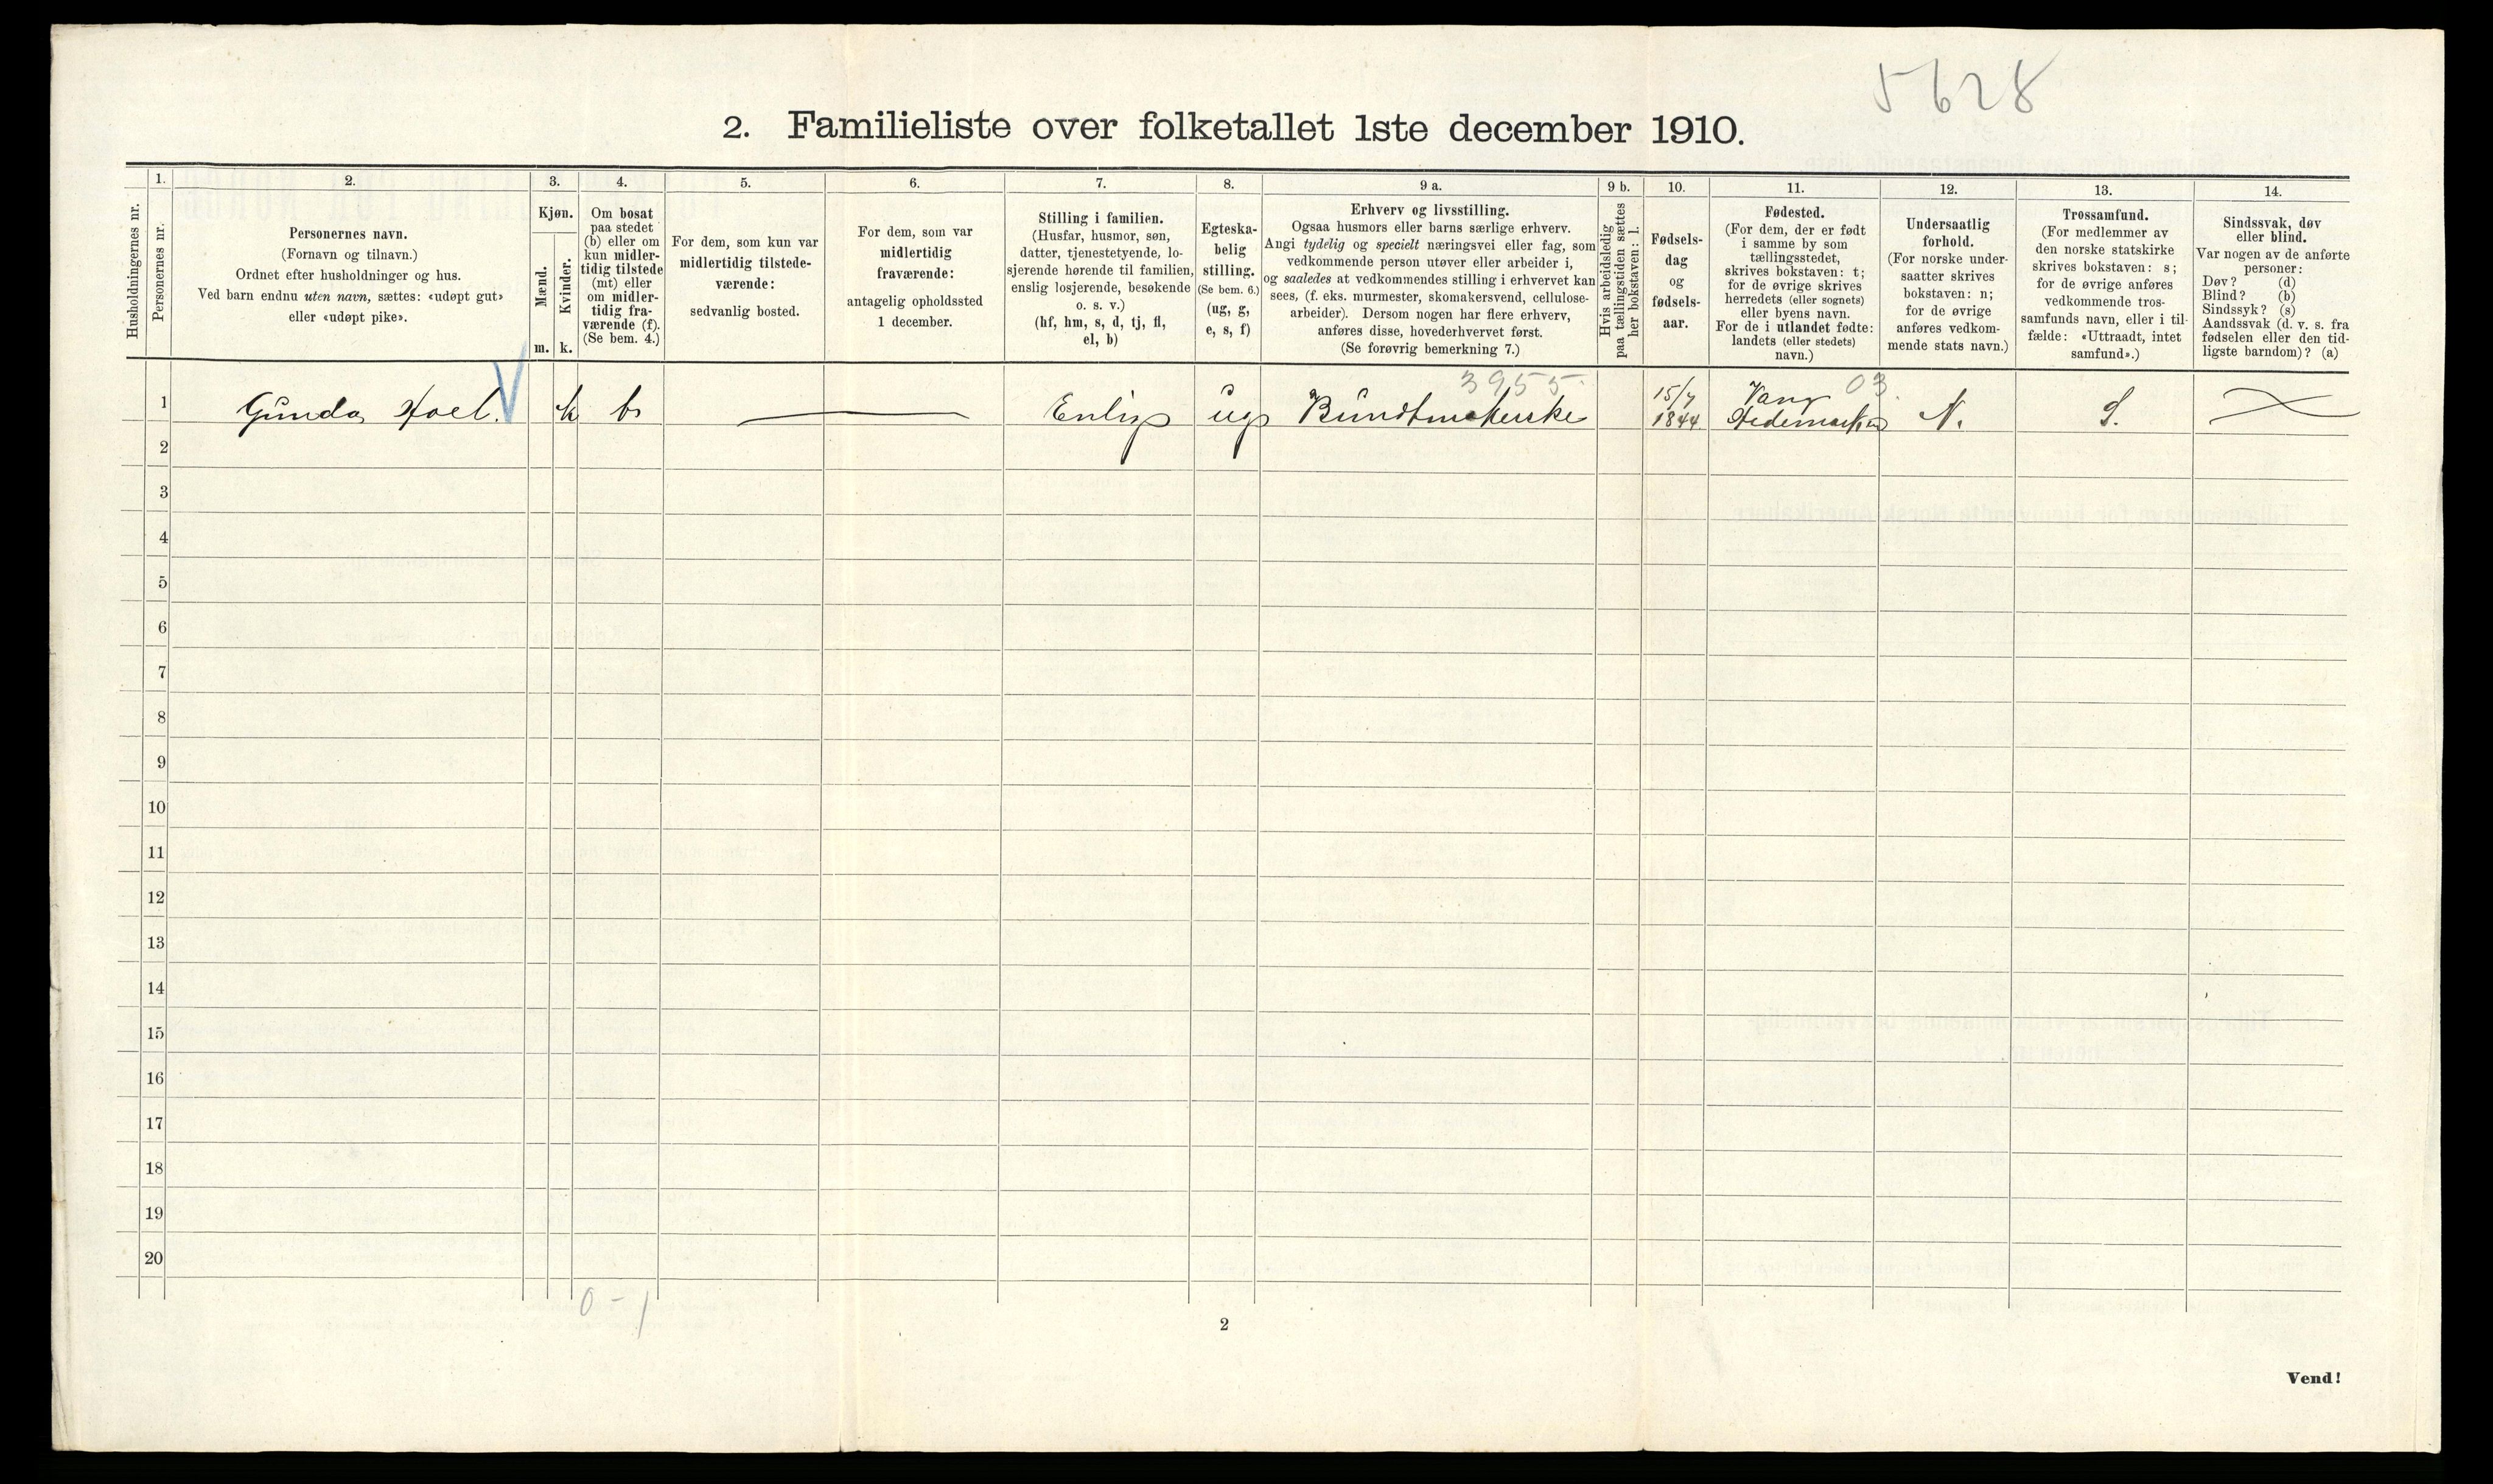 5628
2. Familieliste over folketallet 1ste december 1910.
Husholdningernes nr.
1.
Personernes nr.
2.
Personernes navn.
(Fornavn og tilnavn.)
Ordnet efter husholdninger og hus.
Ved barn endnu uten navn, sættes: «udøpt gut»
eller «udøpt pike».
3.
Kjøn.
Mænd.
Kvinder.
m. k.
4.
Om bosat
paa stedet
(b) eller om
kun midler-
tidig tilstede
(mt) eller
om midler-
tidig fra-
værende (f).
(Se bem. 4.)
5.
For dem, som kun var
midlertidig tilstede-
værende:
sedvanlig bosted.
6.
For dem, som var
midlertidig
fraværende:
antagelig opholdssted
1 december.
7.
Stilling i familien.
(Husfar, husmor, søn,
datter, tjenestetyende, lo-
sjerende hørende til familien,
enslig losjerende, besøkende
o. s. v.)
(hf, hm, s, d, tj, fl,
el, b)
8.
Egteska-
belig
stilling.
(Se bem. 6.)
(ug, g,
e, s, f)
9 a.
Erhverv og livsstilling.
Ogsaa husmors eller barns særlige erhverv.
Angi tydelig og specielt næringsvei eller fag, som
vedkommende person utøver eller arbeider i,
og saaledes at vedkommendes stilling i erhvervet kan
sees, (f. eks. murmester, skomakersvend, cellulose-
arbeider). Dersom nogen har flere erhverv,
anføres disse, hovederhvervet først.
(Se forøvrig bemerkning 7.)
9 b.
Hvis arbeidsledig
paa tællingstiden sættes
her bokstaven: l.
10.
Fødsels-
dag
og
fødsels-
aar.
11.
Fødested.
(For dem, der er født
i samme by som
tællingsstedet,
skrives bokstaven: t;
for de øvrige skrives
herredets (eller sognets)
eller byens navn.
For de i utlandet fødte:
landets (eller stedets)
navn.)
12.
Undersaatlig
forhold.
(For norske under-
saatter skrives
bokstaven: n;
for de øvrige
anføres vedkom-
mende stats navn.)
13.
Trossamfund.
(For medlemmer av
den norske statskirke
skrives bokstaven: s;
for de øvrige anføres
vedkommende tros-
samfunds navn, eller i til-
fælde: «Uttraadt, intet
samfund».)
14.
Sindssvak, døv
eller blind.
Var nogen av de anførte
personer:
Døv? (d)
Blind? (b)
Sindssyk? (s)
Aandssvak (d. v. s. fra
fødselen eller den tid-
ligste barndom)? (a)
3955 03
1 Gunda Hoel. k b Enlig ug Bundtmakerske 15/7 1844 Vang Hedemarken N. S.
2
3
4
5
6
7
8
9
10
11
12
13
14
15
16
17
18
19
20
0-1
2
Vend!